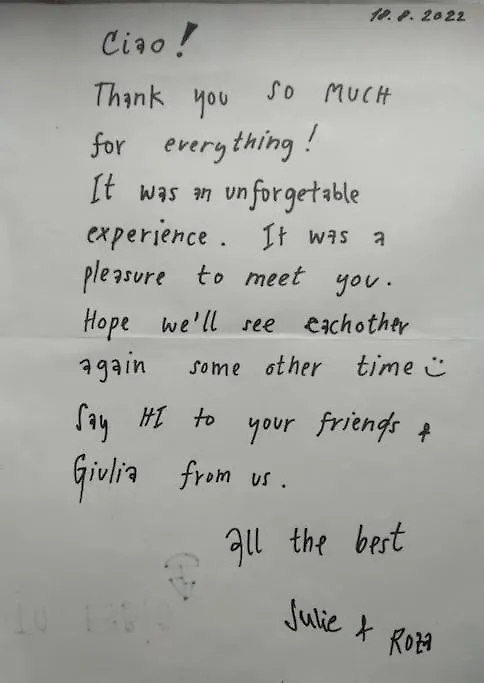 18.8.2022
Ciao!
Thank you so MUCH
for everything!
It was an unforgetable
experience. It was a
pleasure to meet you.
Hope we'll see eachother
again some other time :)
Say HI to your friends &
Giulia from us.
all the best
Julie & Roza